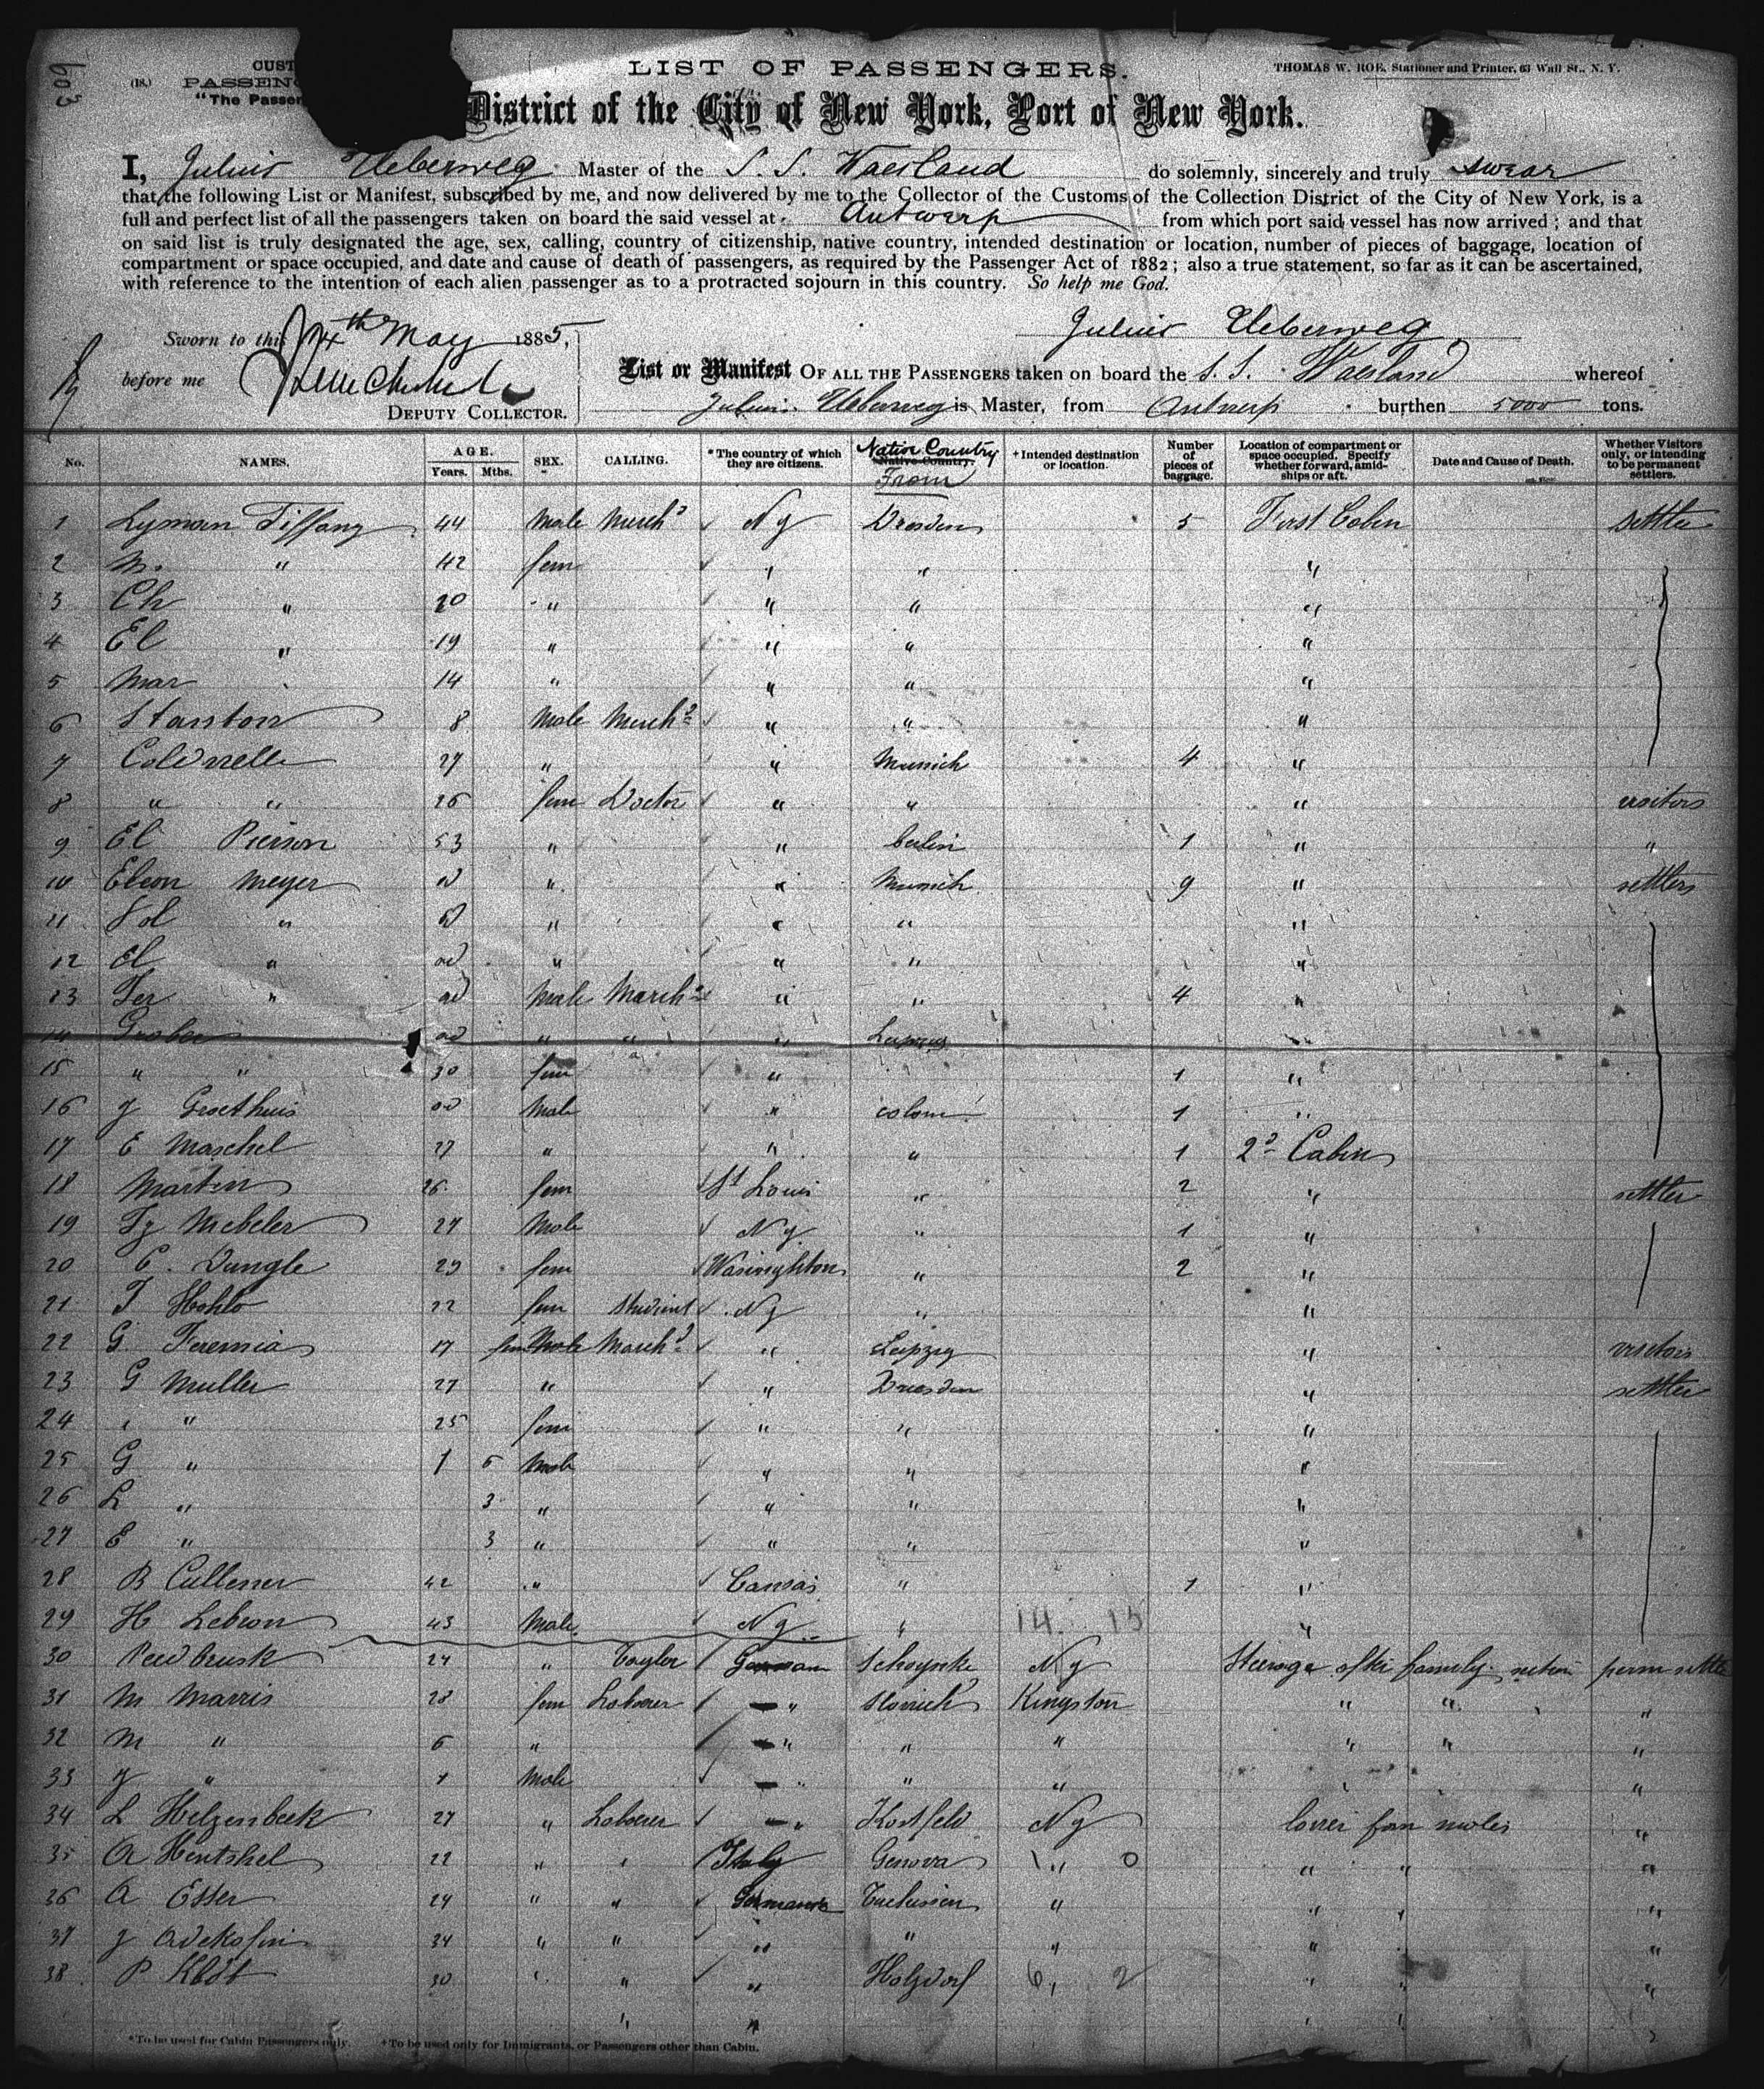 603
CUST
(18.) PASSENG
"The Passen
LIST OF PASSENGERS.
THOMAS W. ROE, Stationer and Printer, 63 Wall St., N. Y.
District of the City of New York, Port of New York.
I, Julius Ueberweg Master of the S. S. Waesland do solemnly, sincerely and truly swear
that the following List or Manifest, subscribed by me, and now delivered by me to the Collector of the Customs of the Collection District of the City of New York, is a
full and perfect list of all the passengers taken on board the said vessel at Antwerp from which port said vessel has now arrived; and that
on said list is truly designated the age, sex, calling, country of citizenship, native country, intended destination or location, number of pieces of baggage, location of
compartment or space occupied, and date and cause of death of passengers, as required by the Passenger Act of 1882; also a true statement, so far as it can be ascertained,
with reference to the intention of each alien passenger as to a protracted sojourn in this country. So help me God.
Sworn to this 14th May 1885, Julius Ueberweg
before me
DEPUTY COLLECTOR.
List or Manifest OF ALL THE PASSENGERS taken on board the S. S. Waesland whereof
Julius Ueberweg is Master, from Antwerp burthen 5000 tons.
No. NAMES. AGE. Years. Mths. SEX. CALLING. *The country of which they are citizens. Native Country Native Country. From †Intended destination or location. Number of pieces of baggage. Location of compartment or space occupied. Specify whether forward, amidships or aft. Date and Cause of Death. Whether Visitors only, or intending to be permanent settlers.
1 Lyman Tiffany 44 Male Merch't NY Dresden 5 First Cabin settler
2 M. " 42 fem " " "
3 Ch " 20 " " " "
4 El " 19 " " " "
5 Mar 14 " " " "
6 Stanton 8 Male Merch't " " "
7 Coldwell 27 " " Munich 4 "
8 " " 26 fem Doctor " " " visitors
9 El Pierson 53 " " Berlin 1 " "
10 Elson Meyer ad " " Munich 9 " settlers
11 Sol " ad " " " "
12 El " ad " " " "
13 Fer " ad Male March't " " 4 "
14 Grober ad " " " Leipzig "
15 " " 30 fem " 1 "
16 J Groethuis ad Male " colone 1 "
17 E Maschel 27 " " " 1 2d Cabin
18 Marten 26 fem St Louis " 2 " settler
19 Fz Mebeler 27 Male NY " 1 "
20 C. Dungle 29 fem Wasinghton " 2 "
21 T Hohlo 22 fem student NY " "
22 G. Feremia 17 fem Male March't " Leipzig " visitors
23 G Muller 27 " " Dresden " settler
24 " " 25 fem " " "
25 G " 1 6 Male " " "
26 L " 3 " " " "
27 E " 3 " " " "
28 B Cullener 42 " Cansas " 1 "
29 H Lebron 43 Male NY " 14 15 "
30 24 " Tayler German NY Steerage perm settler
31 M Marris 28 fem Laborer " Kingston " " "
32 M " 6 " " " " " " "
33 J " 1 Male " " " " "
34 L Helzenbeck 27 " Laborer " Kostfeld NY "
35 A Hentshel 22 " " Italy Genova " 0 " " "
36 A Esser 24 " " Germany " " " "
37 34 " " " " " " "
38 P 30 " " " Holzdorf 6, 2 " " "
*To be used for Cabin Passengers only. †To be used only for Immigrants, or Passengers other than Cabin.